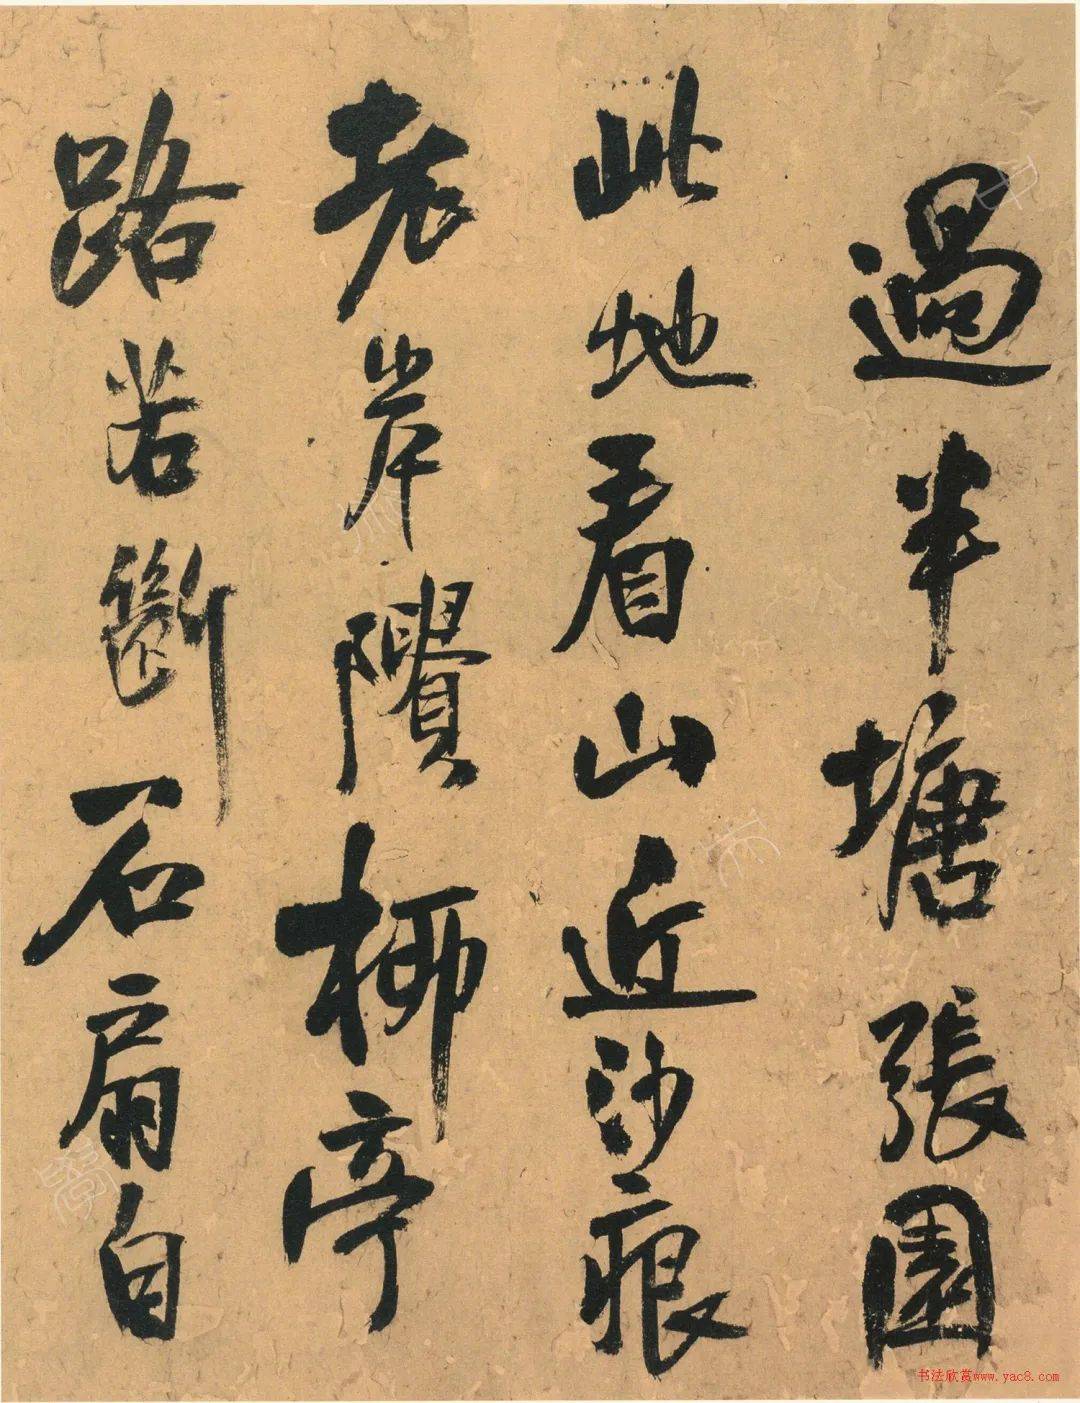 過半塘張園
此地看山近沙痕
老岸隤柳亭
路苦斷石扇自
书法欣赏www.yac8.com